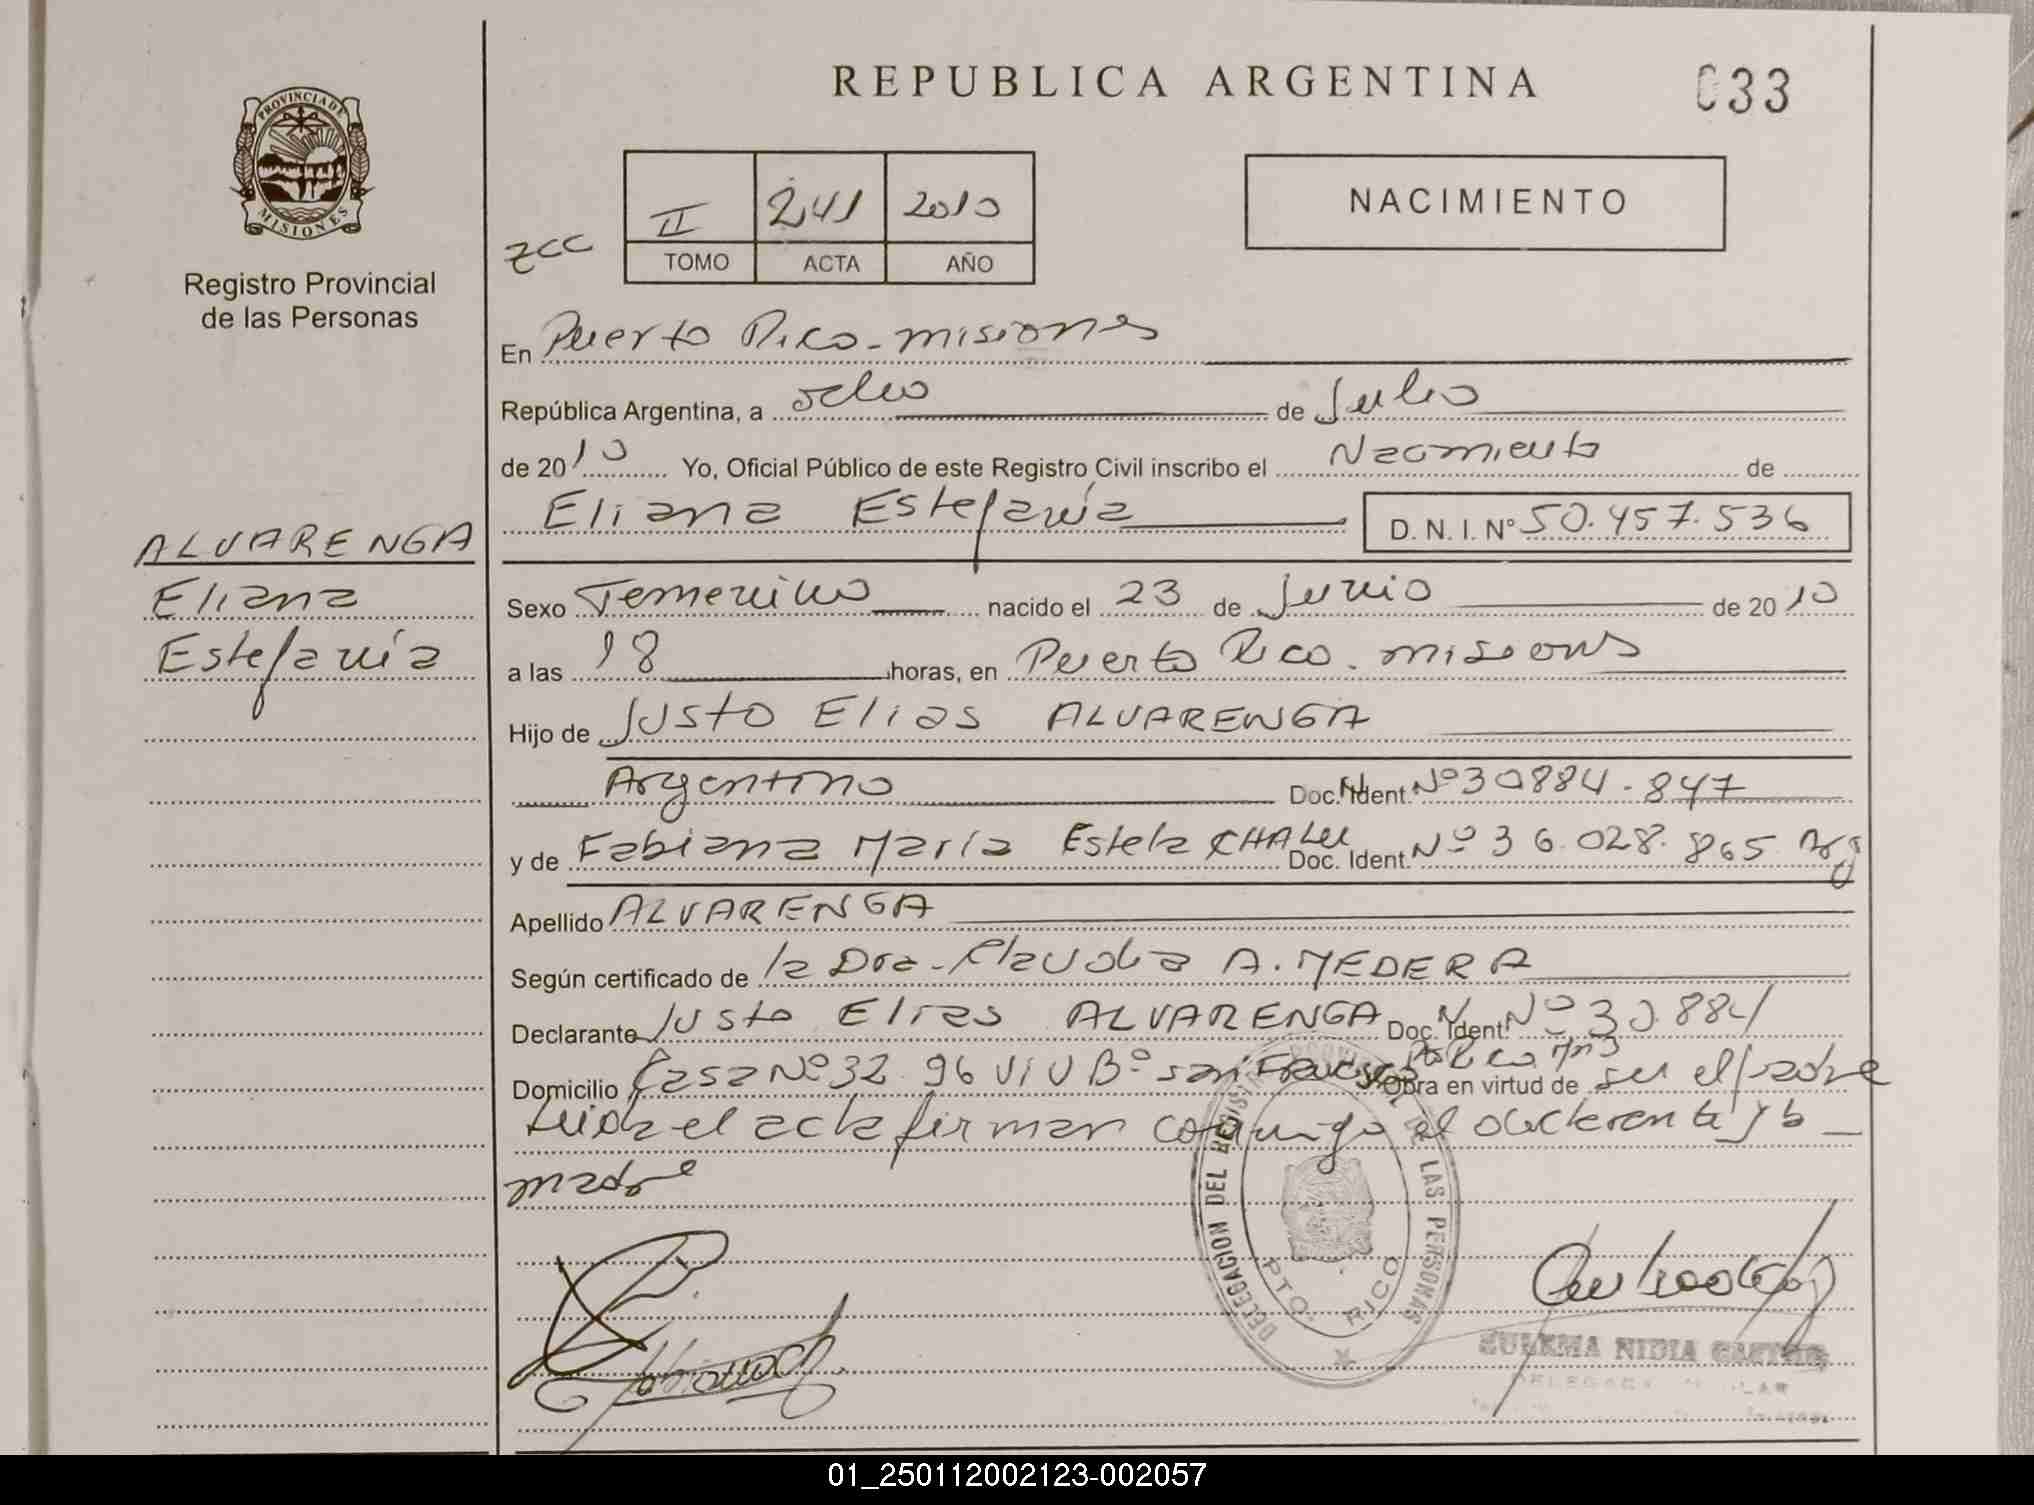 REPUBLICA ARGENTINA
033
PROVINCIA DE
MISIONES
Registro Provincial
de las Personas
II 241 2010
TOMO ACTA AÑO
NACIMIENTO
En Puerto Rico - misiones
República Argentina, a ocho de Julio
de 2010 Yo, Oficial Público de este Registro Civil inscribo el Nacimiento de
Eliana Estefanía D. N. I. Nº 50.457.536
ALVARENGA
Eliana
Estefanía
Sexo Femenino nacido el 23 de Junio de 2010
a las 18 horas, en Puerto Rico. misiones
Hijo de Justo Elias ALVARENGA
Argentino Doc. Ident. Nº 30884.847
y de Fabiana María Estela Doc. Ident. Nº 36.028.865 Arg
Apellido ALVARENGA
Según certificado de la Dra. Claudia A. MEDERA
Declarante Justo Elias ALVARENGA Doc. Ident. Nº 30.884
Domicilio Casa Nº 32 96 VIV Bº san Obra en virtud de ser el padre
Leida el acta firman conmigo el declarante y la
madre
DELEGACION DEL REGISTRO PROVINCIAL DE LAS PERSONAS
PTO. RICO
ZULEMA NIDIA
01_250112002123-002057